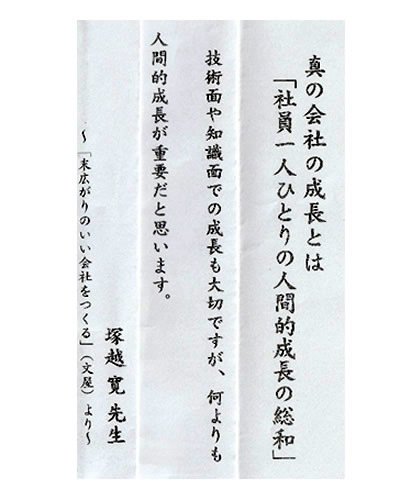 真の会社の成長とは
「社員一人ひとりの人間的成長の総和」
技術面や知識面での成長も大切ですが、何よりも
人間的成長が重要だと思います。
塚越寛先生
～「末広がりのいい会社をつくる」（文屋）より～